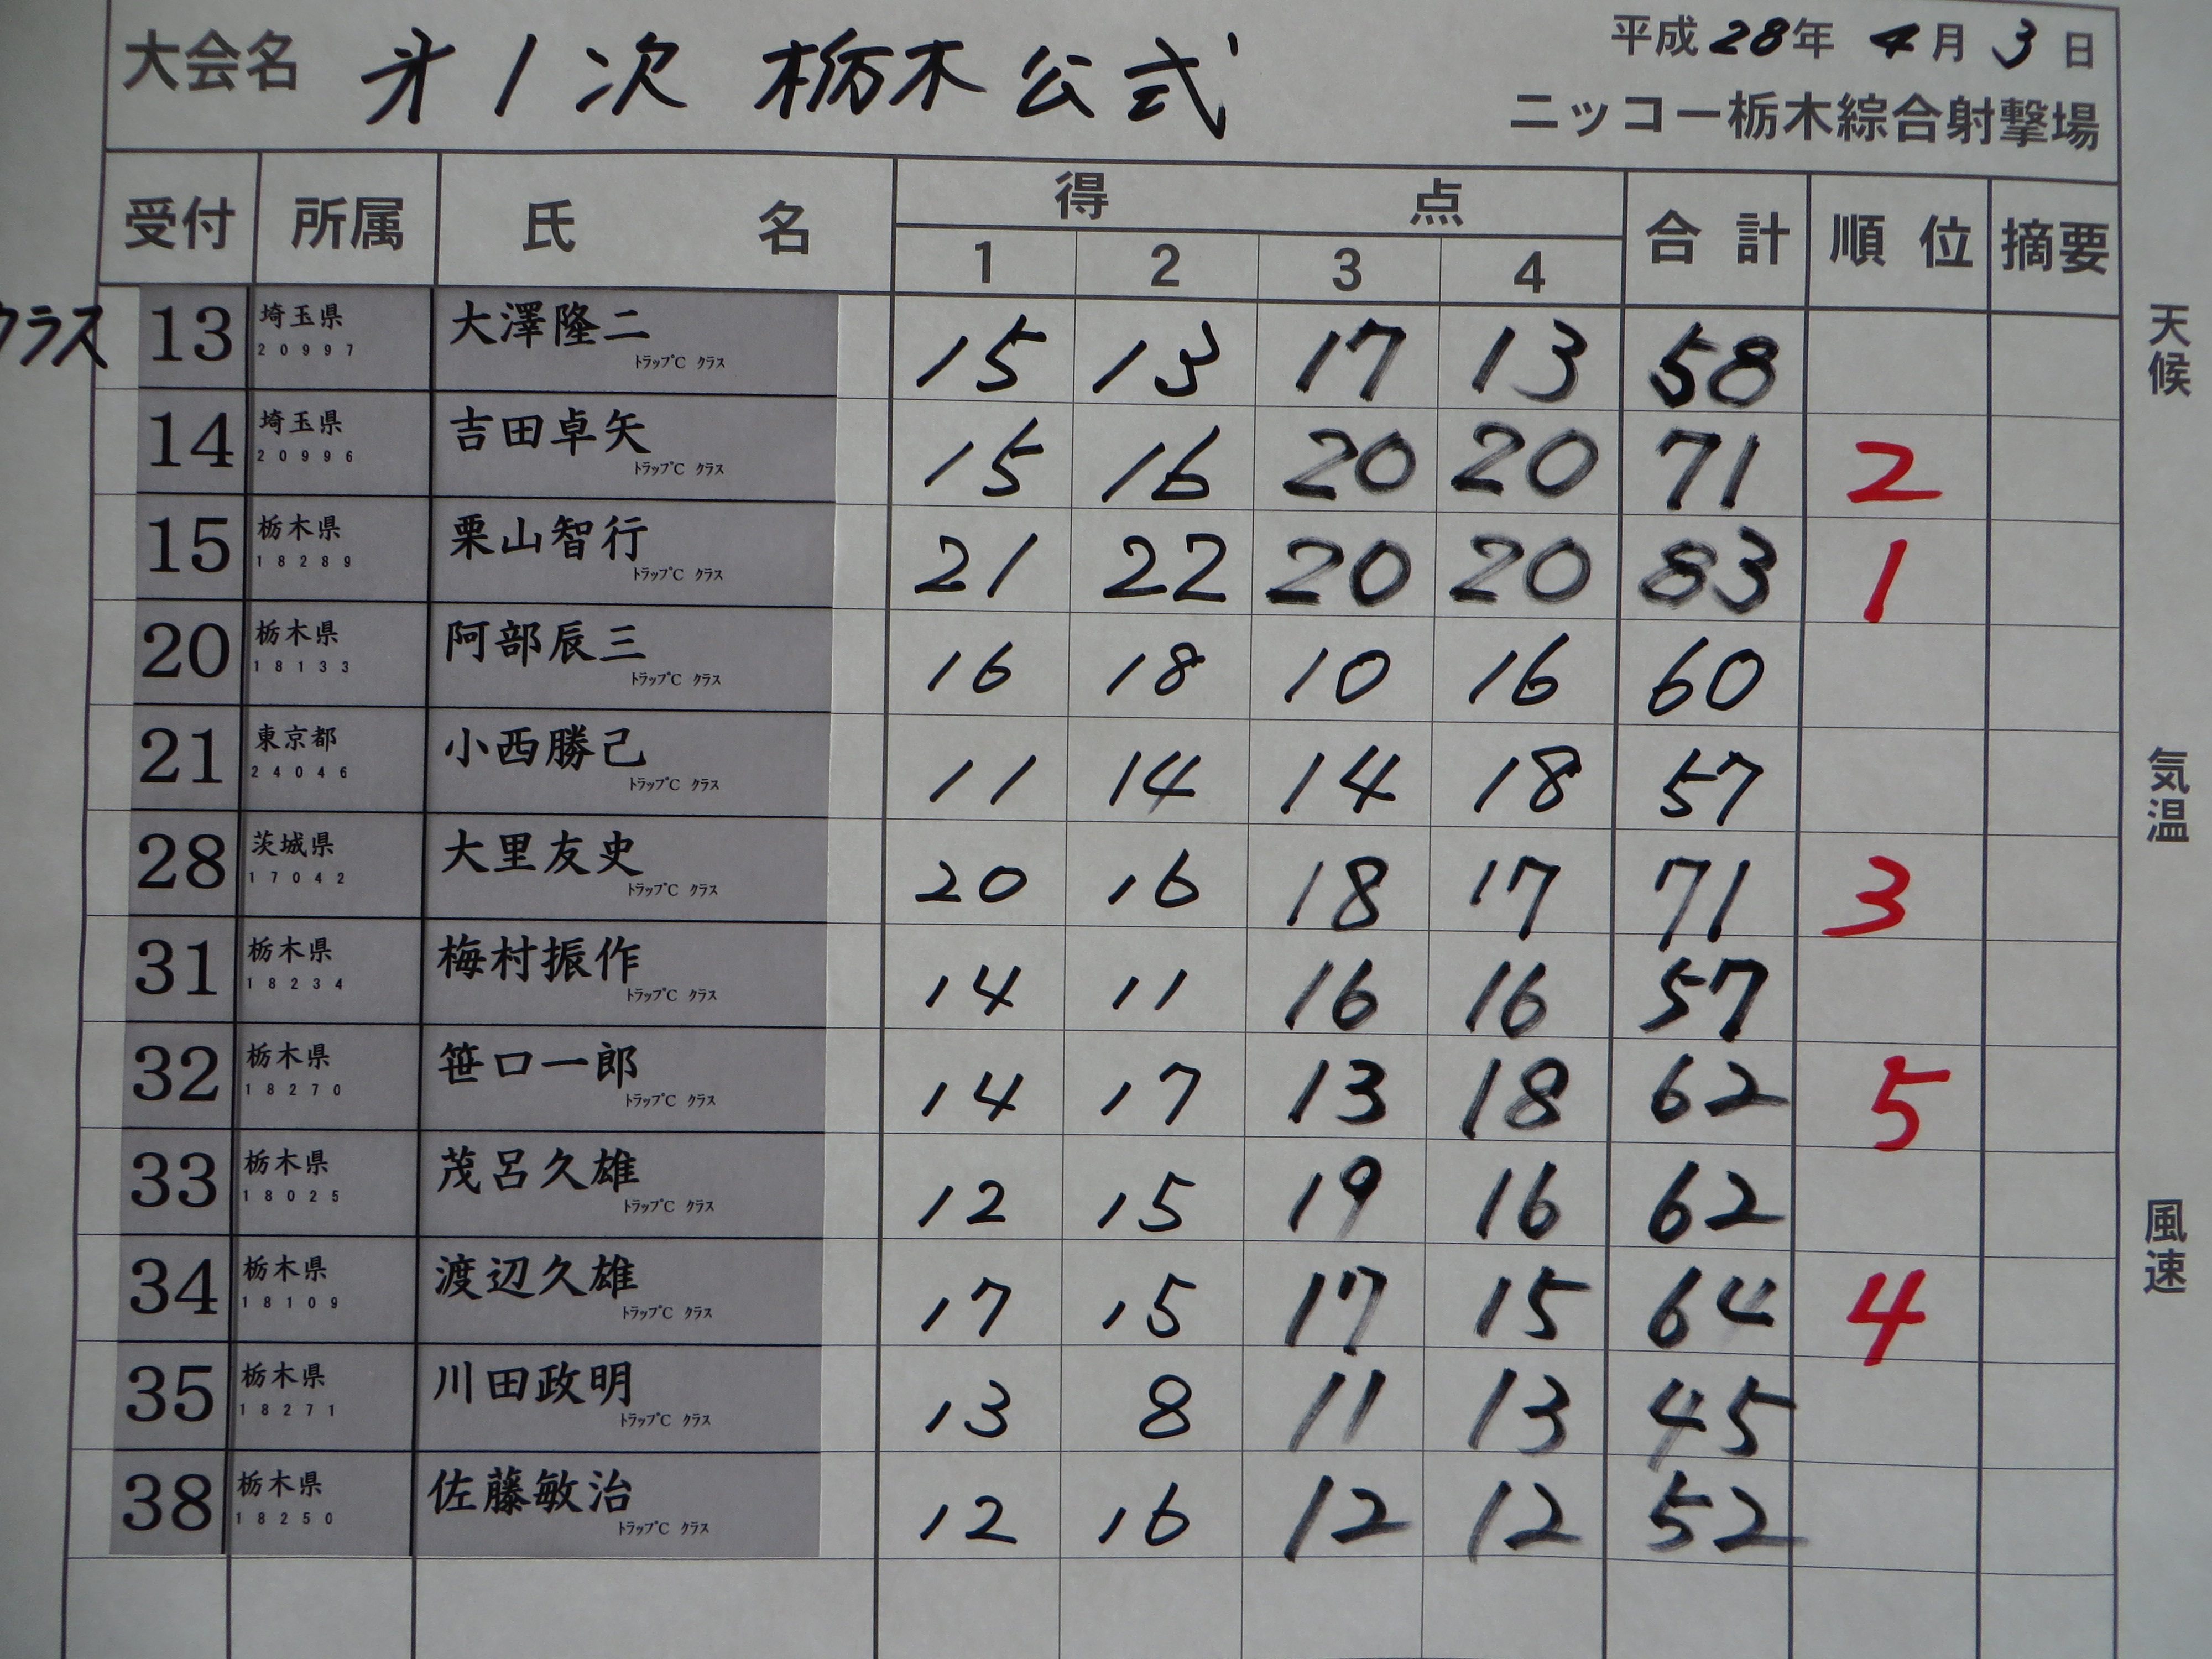 大会名 才1次 栃木公式
平成28年 4月 3日
ニッコー栃木綜合射撃場
受付 所属 氏名 得点 合計 順位 摘要
1 2 3 4
クラス
13 埼玉県 20997 大澤隆二 トラップC クラス 15 13 17 13 58
14 埼玉県 20996 吉田卓矢 トラップC クラス 15 16 20 20 71 2
15 栃木県 18289 栗山智行 トラップC クラス 21 22 20 20 83 1
20 栃木県 18133 阿部辰三 トラップC クラス 16 18 10 16 60
21 東京都 24046 小西勝己 トラップC クラス 11 14 14 18 57
28 茨城県 17042 大里友史 トラップC クラス 20 16 18 17 71 3
31 栃木県 18234 梅村振作 トラップC クラス 14 11 16 16 57
32 栃木県 18270 笹口一郎 トラップC クラス 14 17 13 18 62 5
33 栃木県 18025 茂呂久雄 トラップC クラス 12 15 19 16 62
34 栃木県 18109 渡辺久雄 トラップC クラス 17 15 17 15 64 4
35 栃木県 18271 川田政明 トラップC クラス 13 8 11 13 45
38 栃木県 18250 佐藤敏治 トラップC クラス 12 16 12 12 52
天候
気温
風速